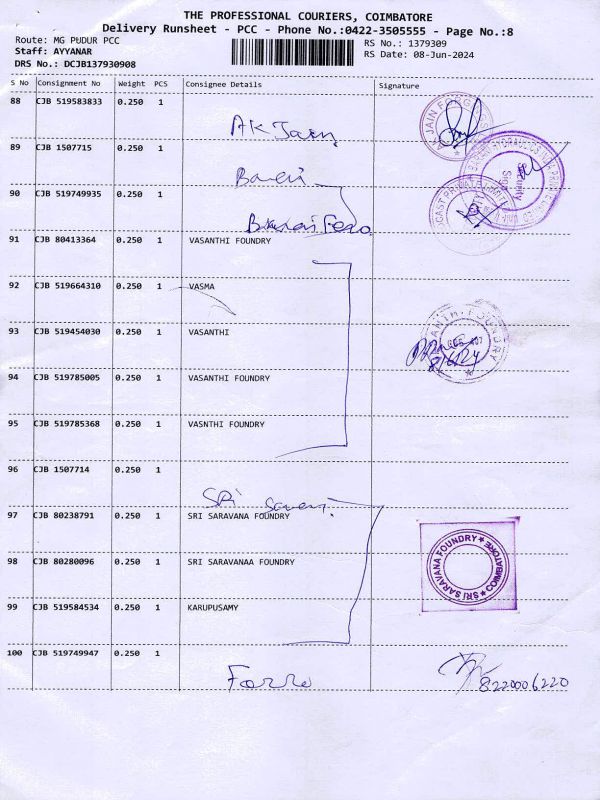 THE PROFESSIONAL COURIERS, COIMBATORE
Delivery Runsheet - PCC - Phone No.:0422-3505555 - Page No.:8
Route: MG PUDUR PCC
RS No.: 1379309
Staff: AYYANAR
RS Date: 08-Jun-2024
DRS No.: DCJB137930908
S No Consignment No Weight PCS Consignee Details Signature
88 CJB 519583833 0.250 1
AK Jain
89 CJB 1507715 0.250 1
90 CJB 519749935 0.250 1
91 CJB 80413364 0.250 1 VASANTHI FOUNDRY
92 CJB 519664310 0.250 1 VASMA
93 CJB 519454030 0.250 1 VASANTHI
8/6/24
94 CJB 519785005 0.250 1 VASANTHI FOUNDRY
95 CJB 519785368 0.250 1 VASNTHI FOUNDRY
96 CJB 1507714 0.250 1
SRi
97 CJB 80238791 0.250 1 SRI SARAVANA FOUNDRY
98 CJB 80280096 0.250 1 SRI SARAVANAA FOUNDRY
SRI SARAVANA FOUNDRY ★ COIMBATORE ★
99 CJB 519584534 0.250 1 KARUPUSAMY
100 CJB 519749947 0.250 1
8220006220